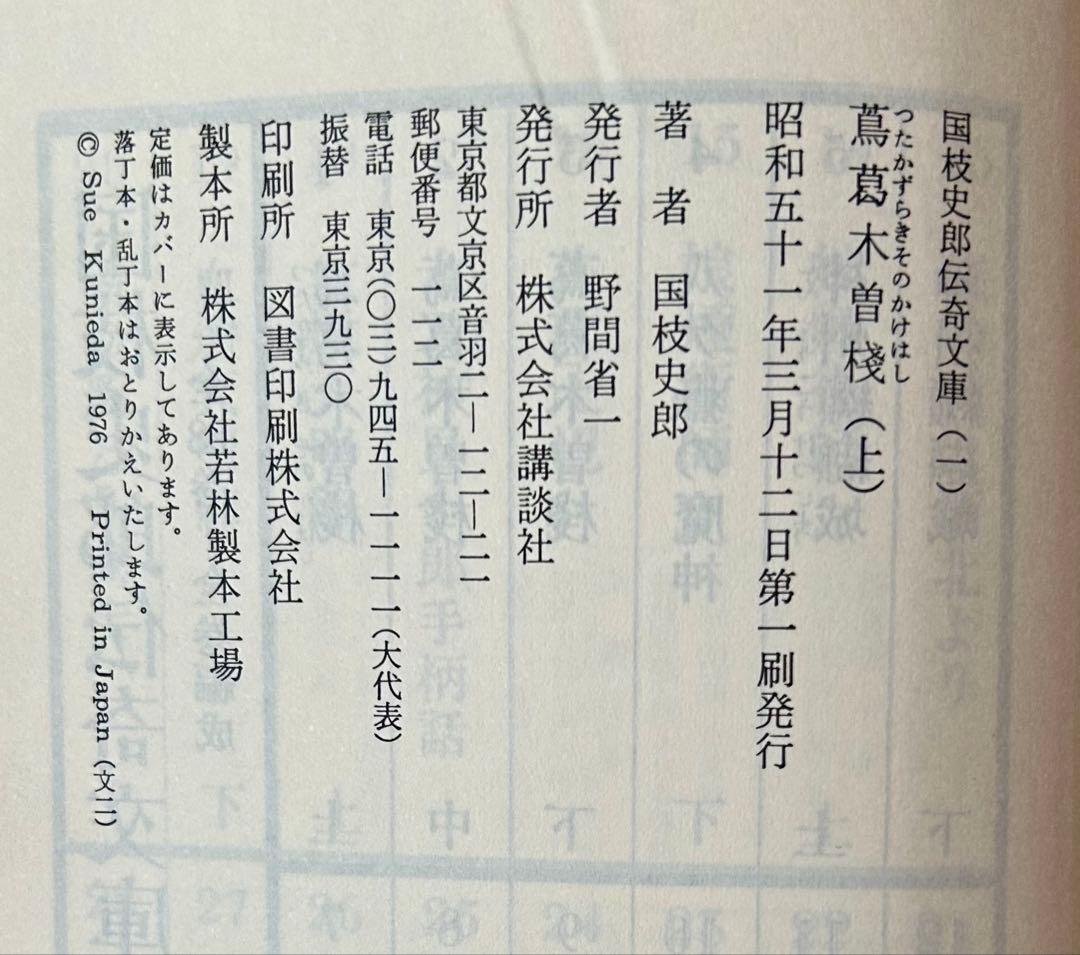 国枝史郎伝奇文庫(一)
つたかずらきそのかけはし
蔦葛木曽棧(上)
昭和五十一年三月十二日第一刷発行
著者 国枝史郎
発行者 野間省一
発行所 株式会社講談社
東京都文京区音羽二―一二―二一
郵便番号 一一二
電話 東京(〇三)九四五―一一一一(大代表)
振替 東京三九三〇
印刷所 図書印刷株式会社
製本所 株式会社若林製本工場
定価はカバーに表示してあります。
落丁本・乱丁本はおとりかえいたします。
© Sue Kunieda 1976 Printed in Japan (文二)